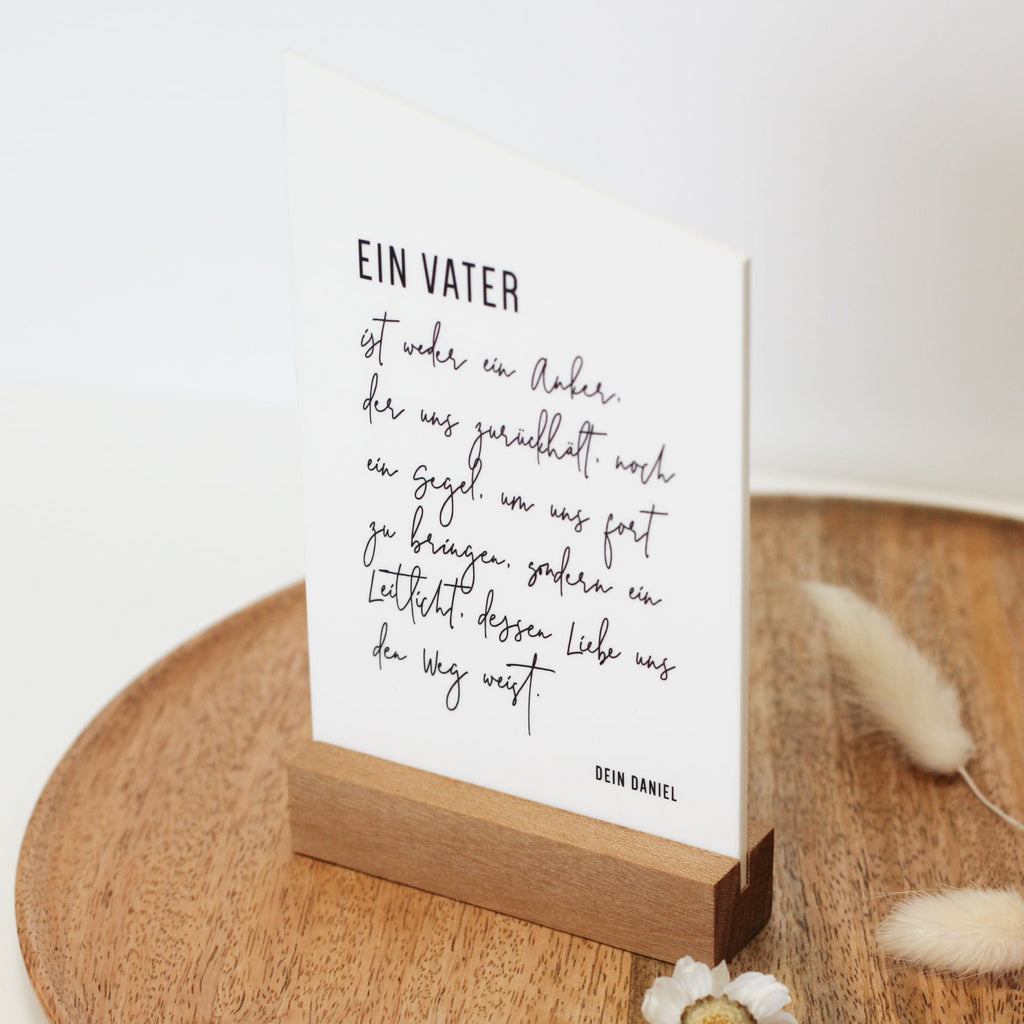 EIN VATER
ist weder ein Anker,
der uns zurückhält, noch
ein Segel, um uns fort
zu bringen, sondern ein
Leitlicht, dessen Liebe uns
den Weg weist.
DEIN DANIEL